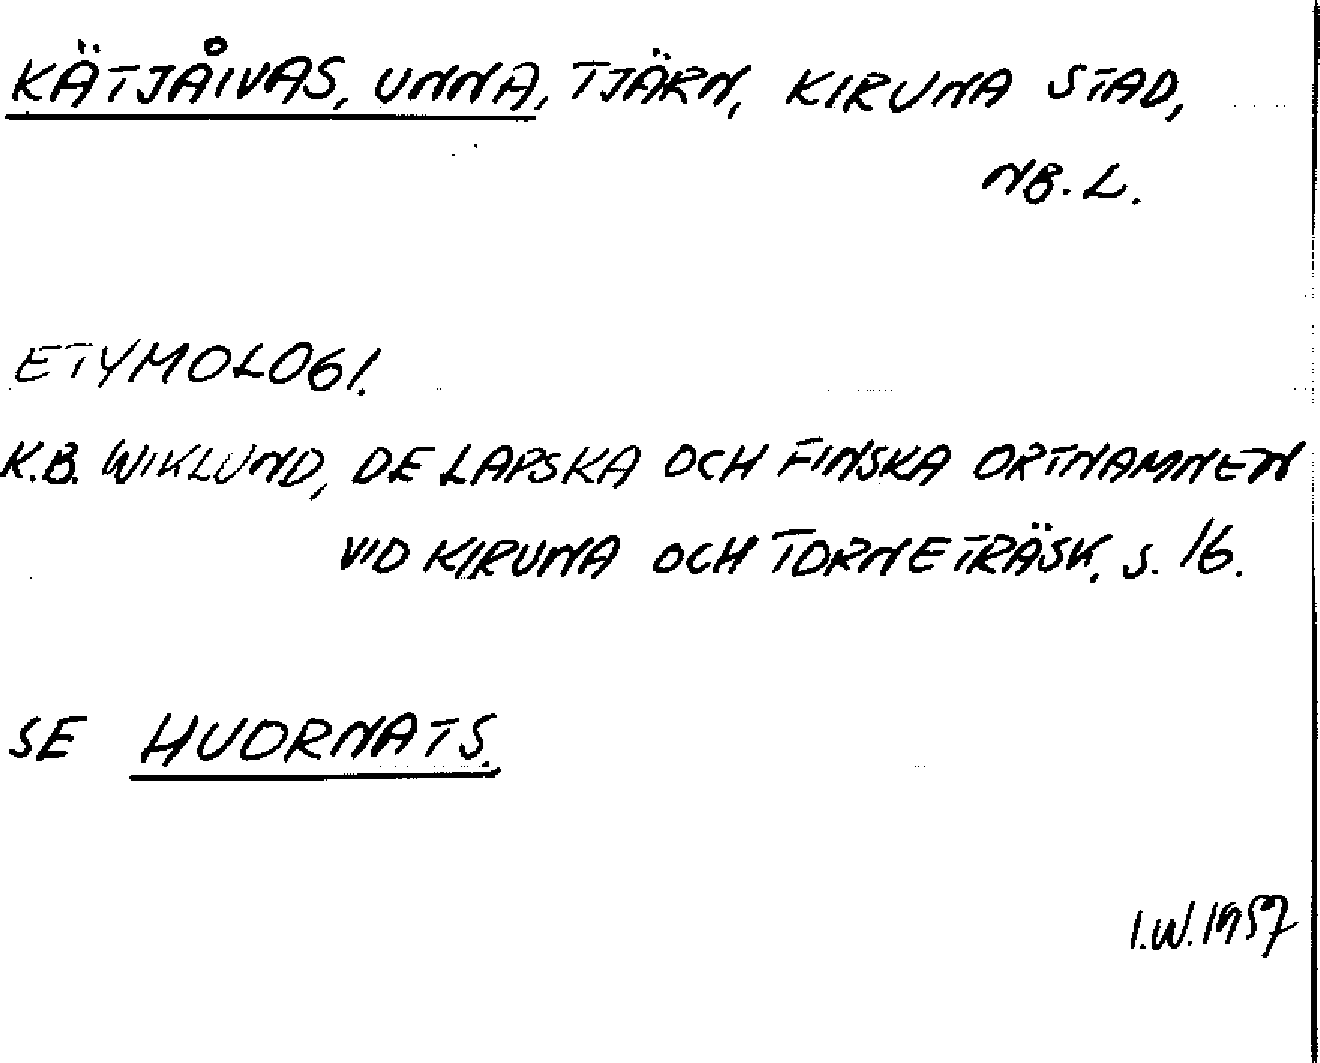 KÄTJÅIVAS, UNNA, TJÄRN, KIRUNA STAD,
NB. L.
ETYMOLOGI.
K.B. WIKLUND, DE LAPSKA OCH FINSKA ORTNAMNEN
VID KIRUNA OCH TORNETRÄSK, S. 16.
SE HUORNATS.
I.W. 1957